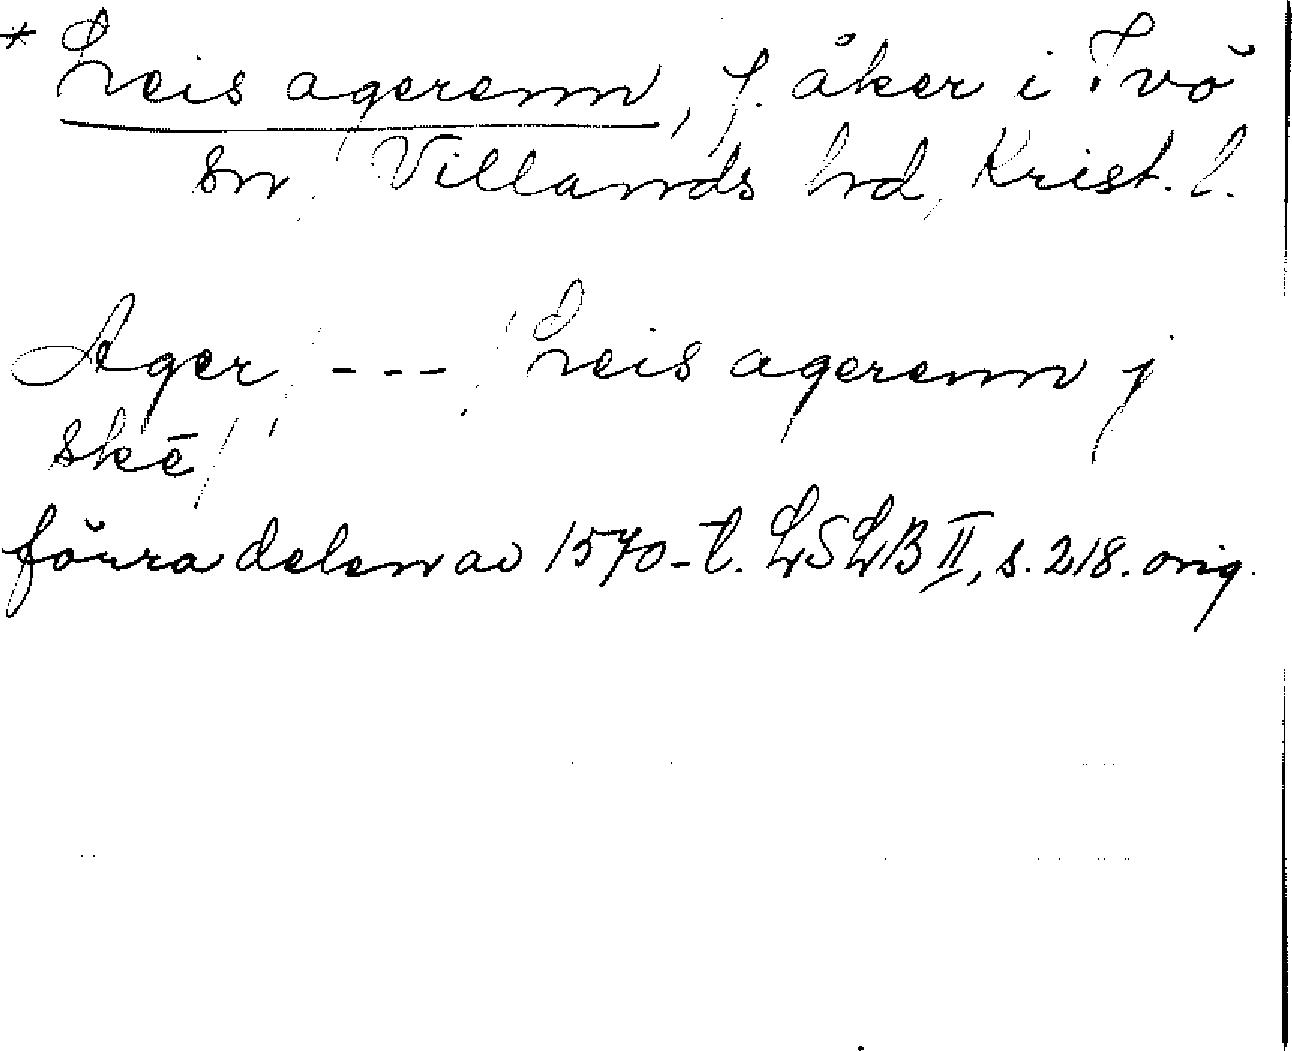 * Leis agerenn, f. åker i Ivö
sn, Villands hd, Krist. l.
Ager / - - - / Leis agerenn j
skē /
förra delen av 1570-t. LSLB II, s. 218. orig.